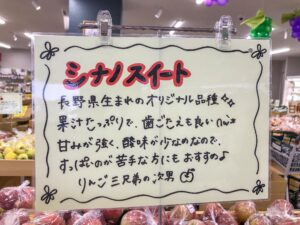 シナノスイート
長野県生まれのオリジナル品種
果汁たっぷりで、歯ごたえも良い
甘みが強く、酸味が少なめなので、
すっぱいのが苦手な方にもおすすめ♪
りんご三兄弟の次男